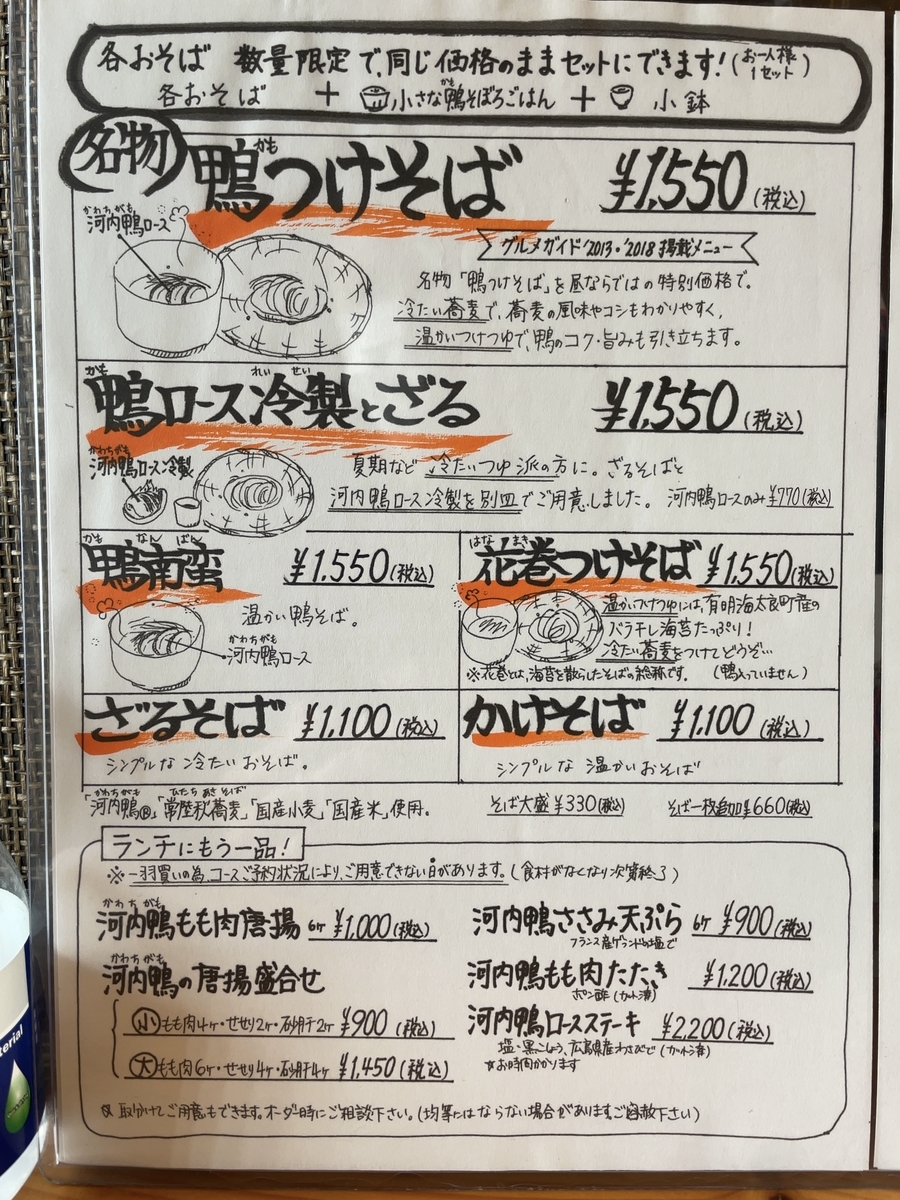 各おそば 数量限定で、同じ価格のままセットにできます!(お一人様1セット)
各おそば + 小さな鴨そぼろごはん + 小鉢
かも
名物 鴨つけそば ¥1,550(税込)
かわちがも
河内鴨ロース
グルメガイド'2013・'2018掲載メニュー
名物「鴨つけそば」を昼ならではの特別価格で。
冷たい蕎麦で、蕎麦の風味やコシもわかりやすく、
温かいつけつゆで、鴨のコク・旨みも引き立ちます。
かも れいせい
鴨ロース冷製とざる ¥1,550(税込)
かわちがも
河内鴨ロース冷製
夏期など冷たいつゆ派の方に。ざるそばと
河内鴨ロース冷製を別皿でご用意しました。 河内鴨ロースのみ¥770(税込)
かもなんばん
鴨南蛮 ¥1,550(税込)
温かい鴨そば。
かわちがも
河内鴨ロース
はなまき
花巻つけそば ¥1,550(税込)
温かいつけつゆには、有明海太良町産の
バラ干し海苔たっぷり!
冷たい蕎麦をつけてどうぞ…
※花巻とは、海苔を散らしたそばの総称です。 (鴨入っていません)
ざるそば ¥1,100(税込)
シンプルな冷たいおそば。
かけそば ¥1,100(税込)
シンプルな温かいおそば
かわちがも ひたちあきそば
「河内鴨®」「常陸秋蕎麦」「国産小麦」「国産米」使用。 そば大盛¥330(税込) そば一枚追加¥660(税込)
ランチにもう一品!
※一羽買いの為、コースご予約状況により、ご用意できない日があります。(食材がなくなり次第終了)
かわちがも
河内鴨もも肉唐揚 6ケ ¥1,000(税込)
河内鴨ささみ天ぷら 6ケ ¥900(税込)
フランス産ゲランドの塩で
かわちがも
河内鴨の唐揚盛合せ
小 もも肉4ケ・せせり2ケ・砂肝2ケ ¥900(税込)
大 もも肉6ケ・せせり4ケ・砂肝4ケ ¥1,450(税込)
河内鴨もも肉たたき ¥1,200(税込)
ポン酢(カット済)
河内鴨ロースステーキ ¥2,200(税込)
塩・黒こしょう、広島県産わさびで(カット済)
☆お時間かかります
☆取分けてご用意もできます。オーダー時にご相談下さい。(均等にはならない場合があります。ご容赦下さい)